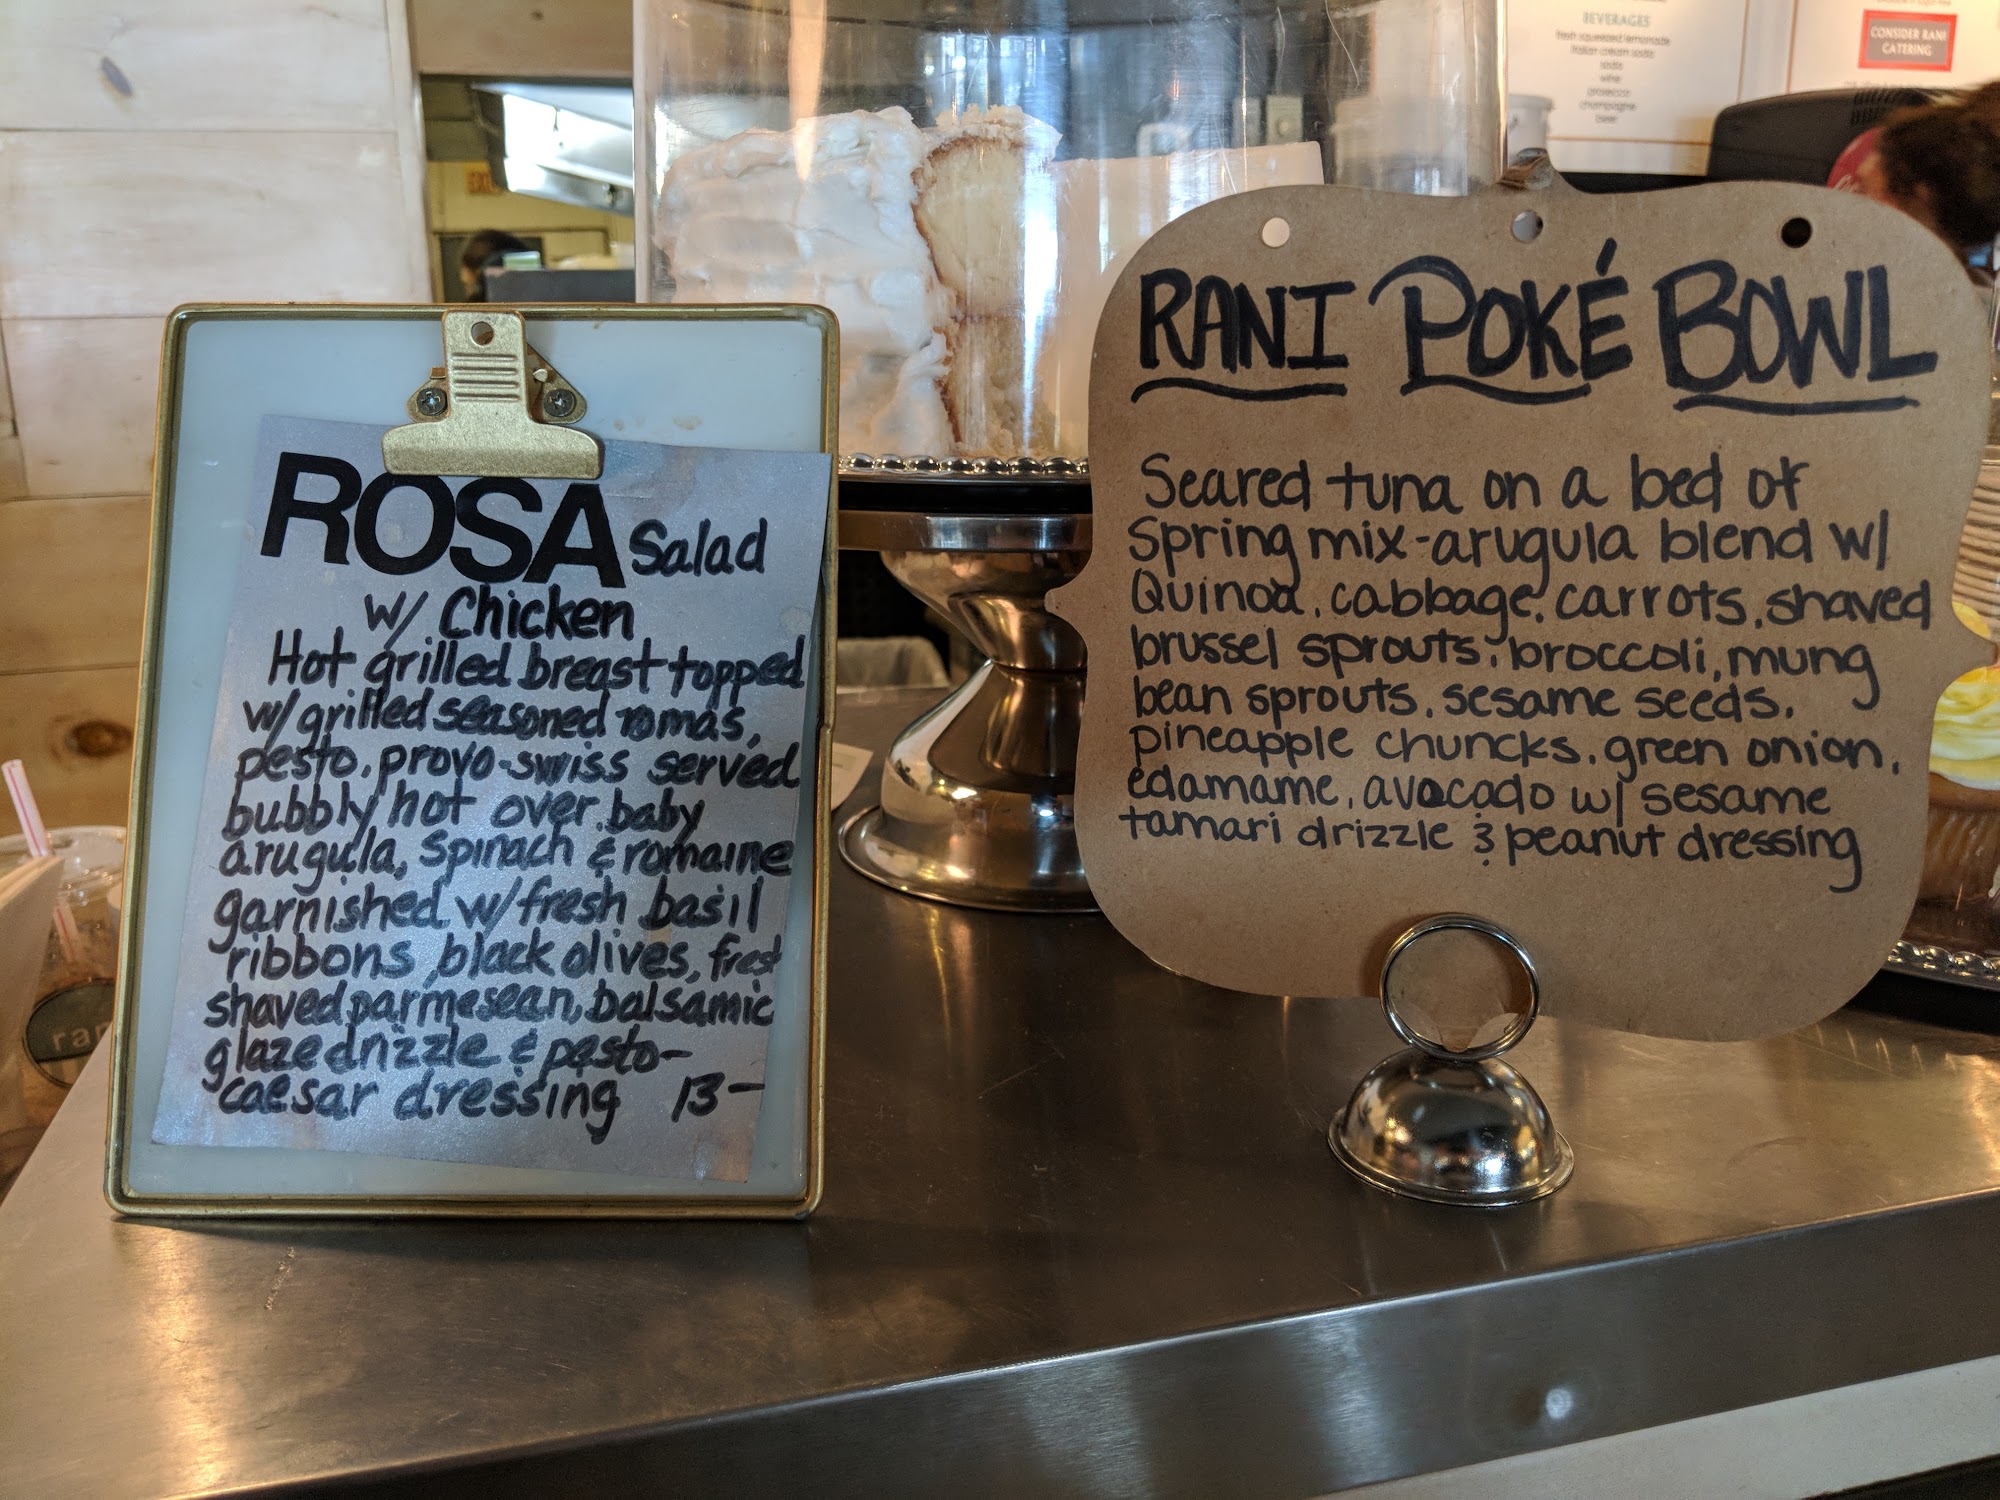 ROSA Salad
w/ Chicken
Hot grilled breast topped
w/ grilled seasoned romas,
pesto, provo-swiss served
bubbly hot over baby
arugula, spinach & romaine
garnished w/ fresh basil
ribbons, black olives, fresh
shaved parmesean, balsamic
glaze drizzle & pesto-
caesar dressing 13-
RANI POKÉ BOWL
Seared tuna on a bed of
Spring mix-arugula blend w/
Quinoa, cabbage, carrots, shaved
brussel sprouts, broccoli, mung
bean sprouts, sesame seeds,
pineapple chuncks, green onion,
edamame, avocado w/ sesame
tamari drizzle & peanut dressing
BEVERAGES
fresh squeezed lemonade
italian cream soda
soda
wine
prosecco
champagne
beer
CONSIDER RANI
CATERING